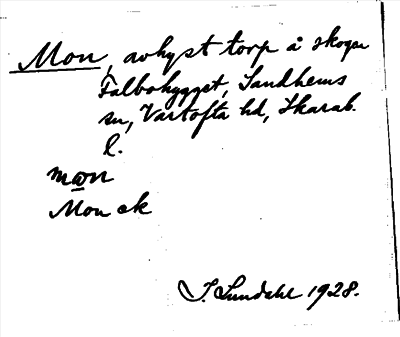 Mon, avhyst torp å skogen
Falbohygget, Sandhems
sn, Vartofta hd, Skarab.
l.
mɷn
Mon ek
I. Lundahl 1928.